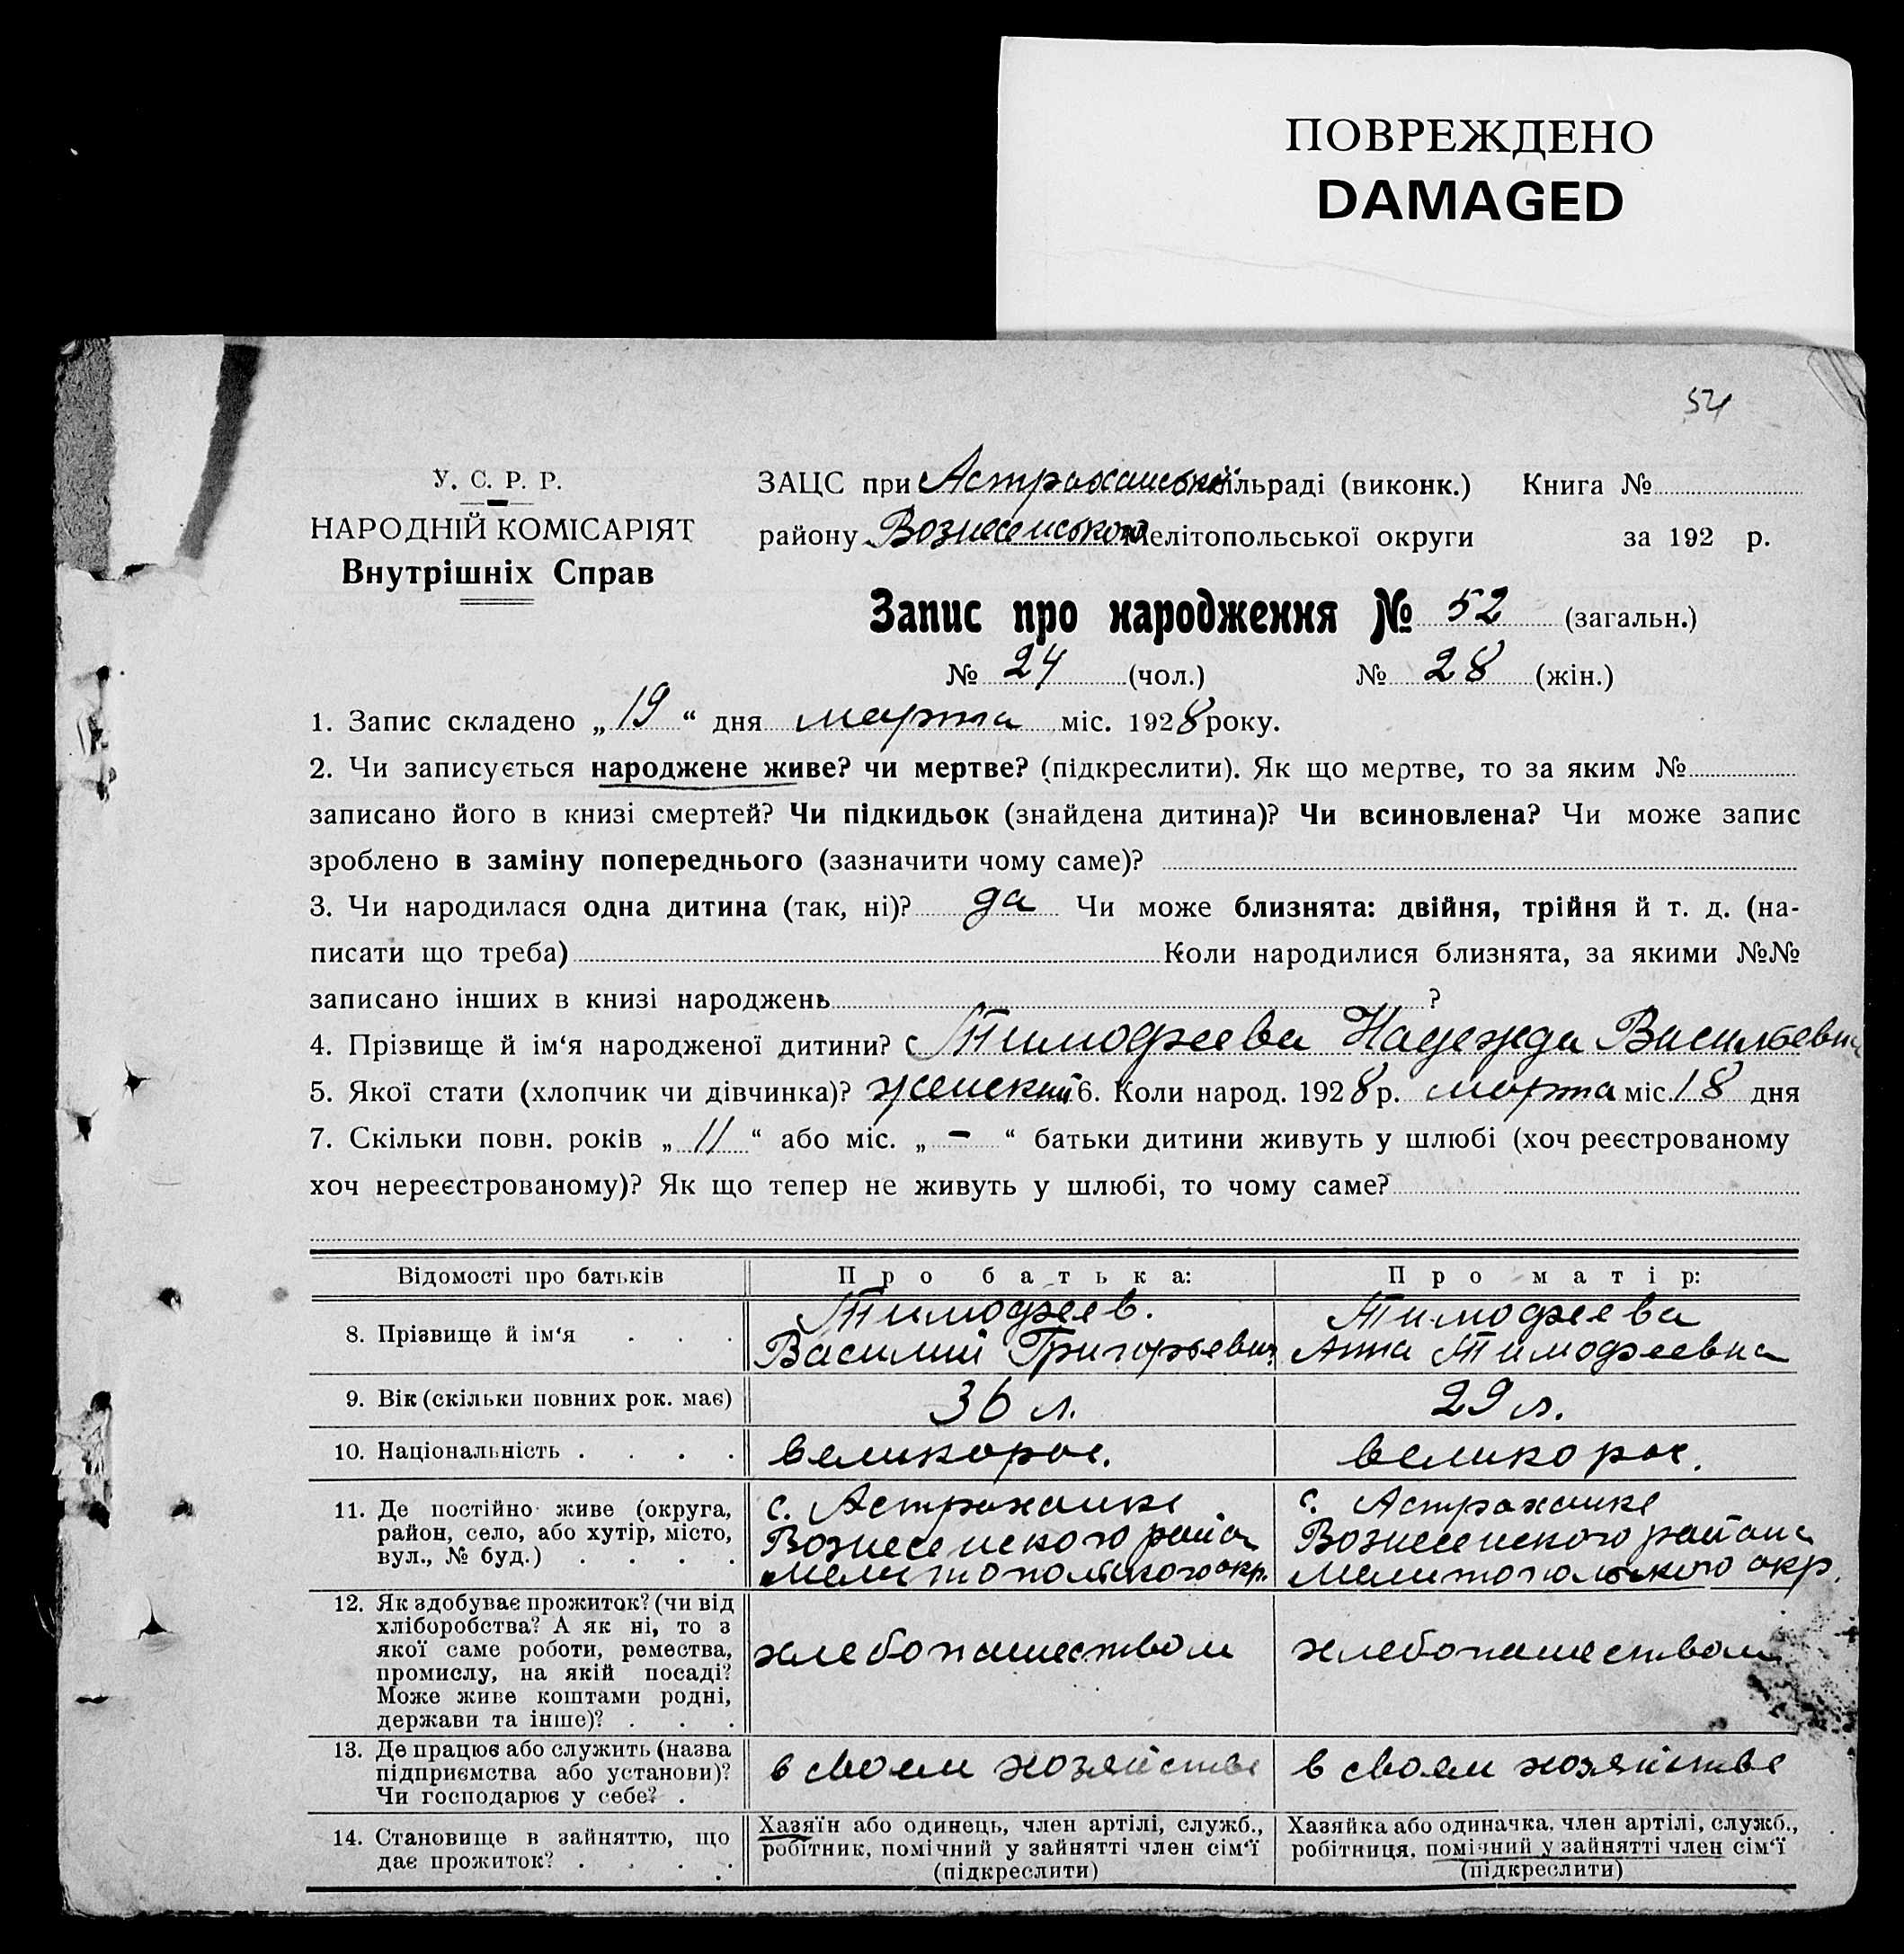 ПОВРЕЖДЕНО
DAMAGED
54
У. С. Р. Р.
НАРОДНІЙ КОМІСАРІЯТ
Внутрішніх Справ
ЗАЦС при Астраханській сільраді (виконк.) Книга №
району Вознесенського Мелітопольської округи за 192 р.
Запис про народження № 52 (загальн.)
№ 24 (чол.) № 28 (жін.)
1. Запис складено „19“ дня марта міс. 1928 року.
2. Чи записується народжене живе? чи мертве? (підкреслити). Як що мертве, то за яким №
записано його в книзі смертей? Чи підкидьок (знайдена дитина)? Чи всиновлена? Чи може запис
зроблено в заміну попереднього (зазначити чому саме)?
3. Чи народилася одна дитина (так, ні)? да Чи може близнята: двійня, трійня й т. д. (на-
писати що треба) Коли народилися близнята, за якими №№
записано інших в книзі народжень ?
4. Прізвище й ім‘я народженої дитини? Тимофеева Надежда Васильевна
5. Якої стати (хлопчик чи дівчинка)? женский 6. Коли народ. 1928 р. марта міс. 18 дня
7. Скільки повн. років „11“ або міс. „-“ батьки дитини живуть у шлюбі (хоч реєстрованому
хоч нереєстрованому)? Як що тепер не живуть у шлюбі, то чому саме?
Відомості про батьків Про батька: Про матір:
8. Прізвище й ім‘я . . .
Тимофеев.
Василий Григорьевич
Тимофеева
Анна Тимофеевна
9. Вік (скільки повних рок. має) 36 л. 29 л.
10. Національність . . . . великорос. великорос.
11. Де постійно живе (округа,
район, село, або хутір, місто,
вул., № буд.) . . . .
с. Астраханке
Вознесенского района
Мелитопольского окр.
с. Астраханке
Вознесенского района
Мелитопольского окр.
12. Як здобуває прожиток? (чи від
хліборобства? А як ні, то з
якої саме роботи, ремества,
промислу, на якій посаді?
Може живе коштами родні,
держави та інше)? . . .
хлебопашеством
хлебопашеством
13. Де працює або служить (назва
підприємства або установи)?
Чи господарює у себе? .
в своем хозяйстве
в своем хозяйстве
14. Становище в зайняттю, що
дає прожиток? . . . .
Хазяїн або одинець, член артілі, служб.,
робітник, помічний у зайнятті член сім‘ї
(підкреслити)
Хазяйка або одиначка, член артілі, служб.,
робітниця, помічний у зайнятті член сім‘ї
(підкреслити)